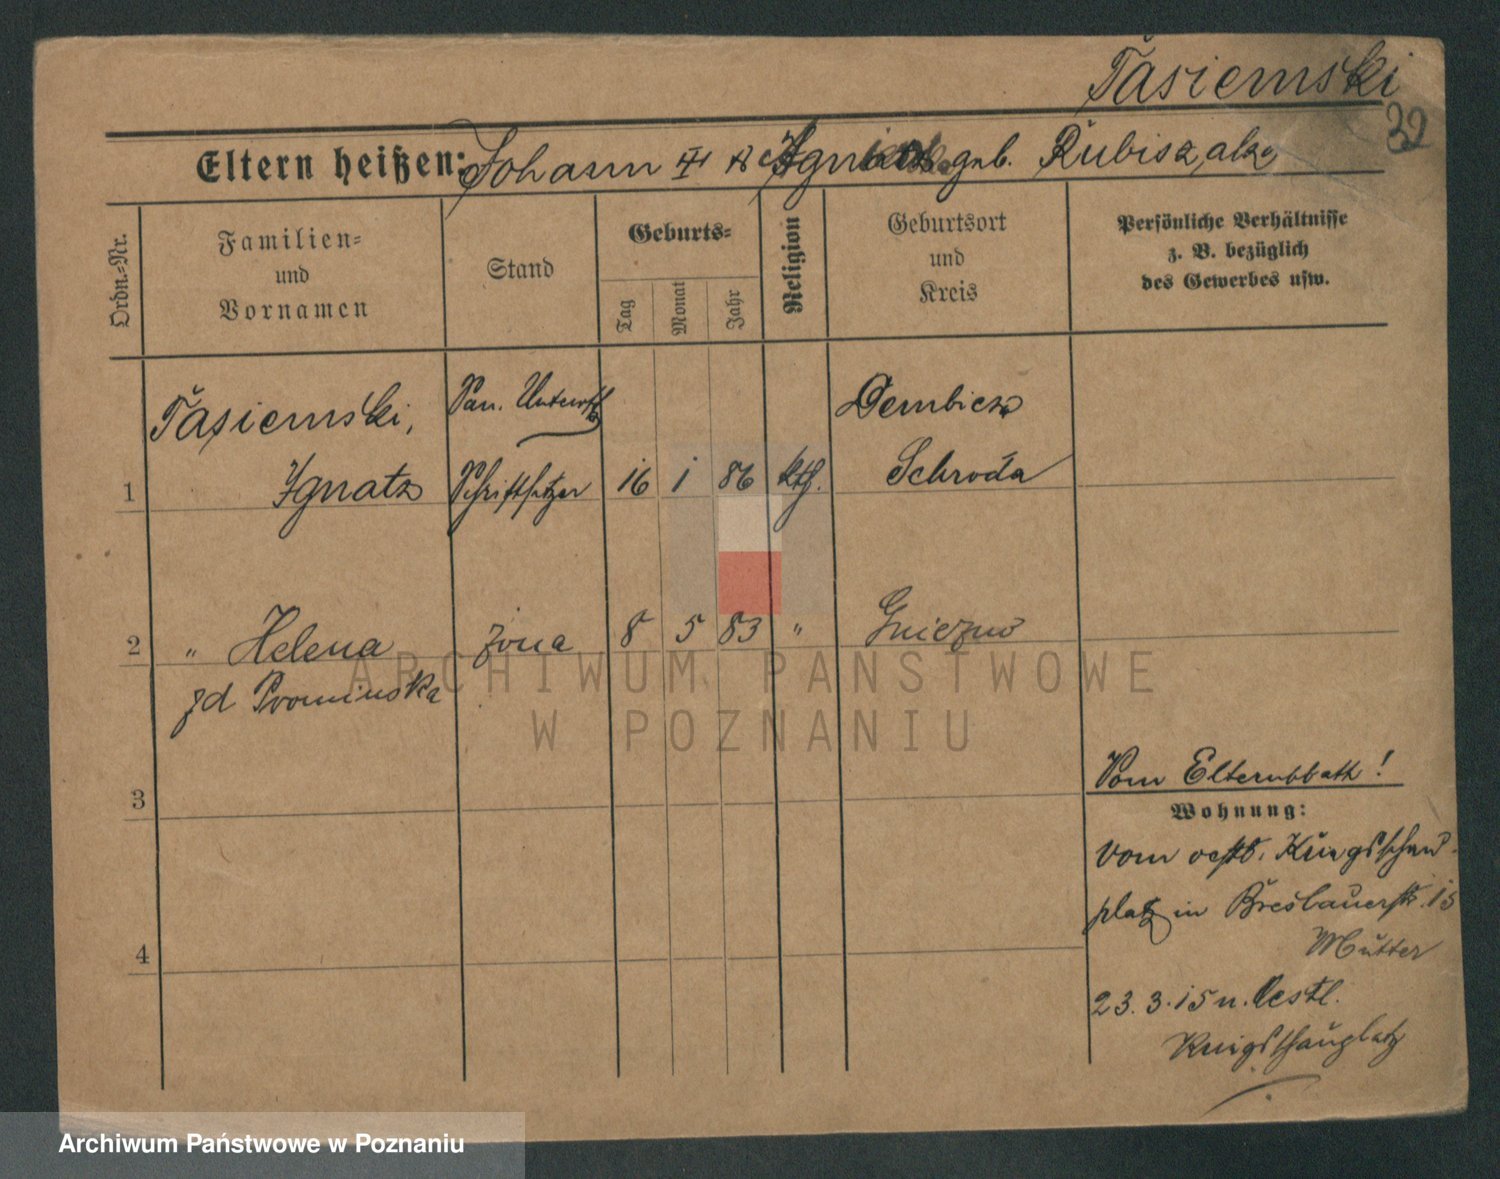 Tasiemski
32
Eltern heißen: Johann geb. Rubiszalze
Ordn.-Nr.
Familien-
und
Vornamen
Stand
Geburts-
Tag
Monat
Jahr
Religion
Geburtsort
und
Kreis
Persönliche Verhältnisse
z. B. bezüglich
des Gewerbes usw.
1
Tasiemski,
Ignatz
San. Unteroff
Schriftsetzer
16 1 86 kth.
Dembicz
Schroda
2
" Helena
zd Prominska
żona
8 5 83 "
Gniezno
3
4
Vom Elternblatt!
Wohnung:
vom oestl. Kriegsschau-
platz in Breslauerstr. 15
Mutter
23.3.15 n. Oestl.
Kriegsschauplatz
ARCHIWUM PAŃSTWOWE
W POZNANIU
Archiwum Państwowe w Poznaniu